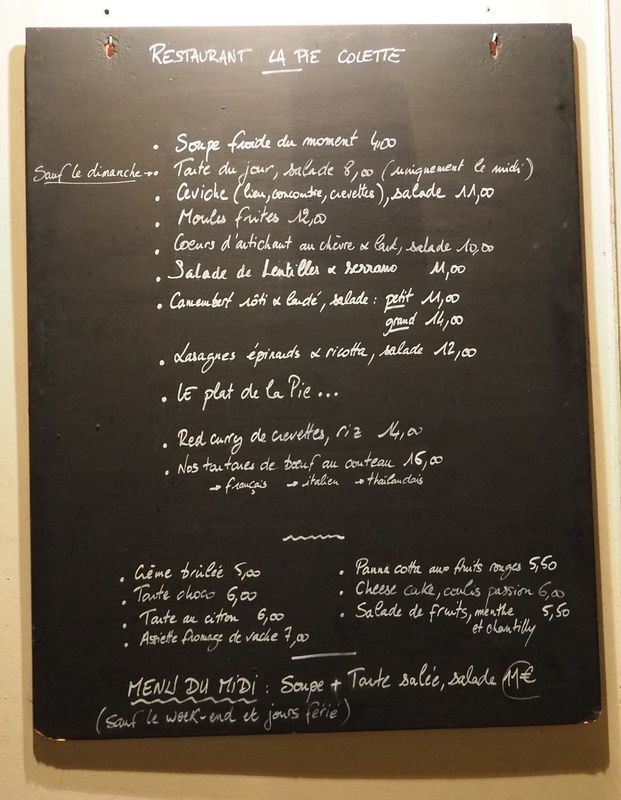 RESTAURANT LA PIE COLETTE
• Soupe froide du moment 4,00
Sauf le dimanche → • Tarte du jour, salade 8,00 (uniquement le midi)
• Ceviche (lieu, concombre, crevettes), salade 11,00
• Moules frites 12,00
• Coeurs d'artichaut au chèvre & lard, salade 10,00
• Salade de Lentilles & serrano 11,00
• Camembert rôti & lardé, salade : petit 11,00
grand 14,00
• Lasagnes épinards & ricotta, salade 12,00
• LE plat de la Pie...
• Red curry de crevettes, riz 14,00
• Nos tartares de bœuf au couteau 16,00
→ français → italien → thaïlandais
• Crème brûlée 5,00
• Tarte choco 6,00
• Tarte au citron 6,00
• Assiette fromage de vache 7,00
• Panna cotta aux fruits rouges 5,50
• Cheese cake, coulis passion 6,00
• Salade de fruits, menthe 5,50
et chantilly
MENU DU MIDI : Soupe + Tarte salée, salade 11€
(sauf le week-end et jours férié)